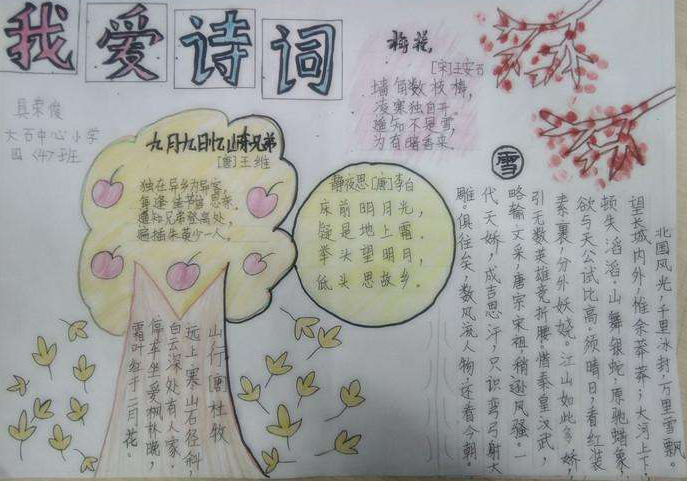 我爱诗词
吴荣俊
大百中心小学
四〈47〉班
梅花
[宋]王安石
墙角数枝梅，
凌寒独自开。
遥知不是雪，
为有暗香来。
九月九日忆山东兄弟
[唐]王维
独在异乡为异客，
每逢佳节倍思亲。
遥知兄弟登高处，
遍插朱萸少一人。
静夜思[唐]李白
床前明月光，
疑是地上霜。
举头望明月，
低头思故乡。
山行[唐]杜牧
远上寒山石径斜，
白云深处有人家。
停车坐爱枫林晚，
霜叶红于二月花。
雪
北国风光，千里冰封，万里雪飘。
望长城内外，惟余莽莽；大河上下，
顿失滔滔。山舞银蛇，原驰蜡象，
欲与天公试比高。须晴日，看红装
素裹，分外妖娆。江山如此多娇，
引无数英雄竞折腰。惜秦皇汉武，
略输文采，唐宗宋祖，稍逊风骚。一
代天娇，成吉思汗，只识弯弓射大
雕。俱往矣，数风流人物，还看今朝。